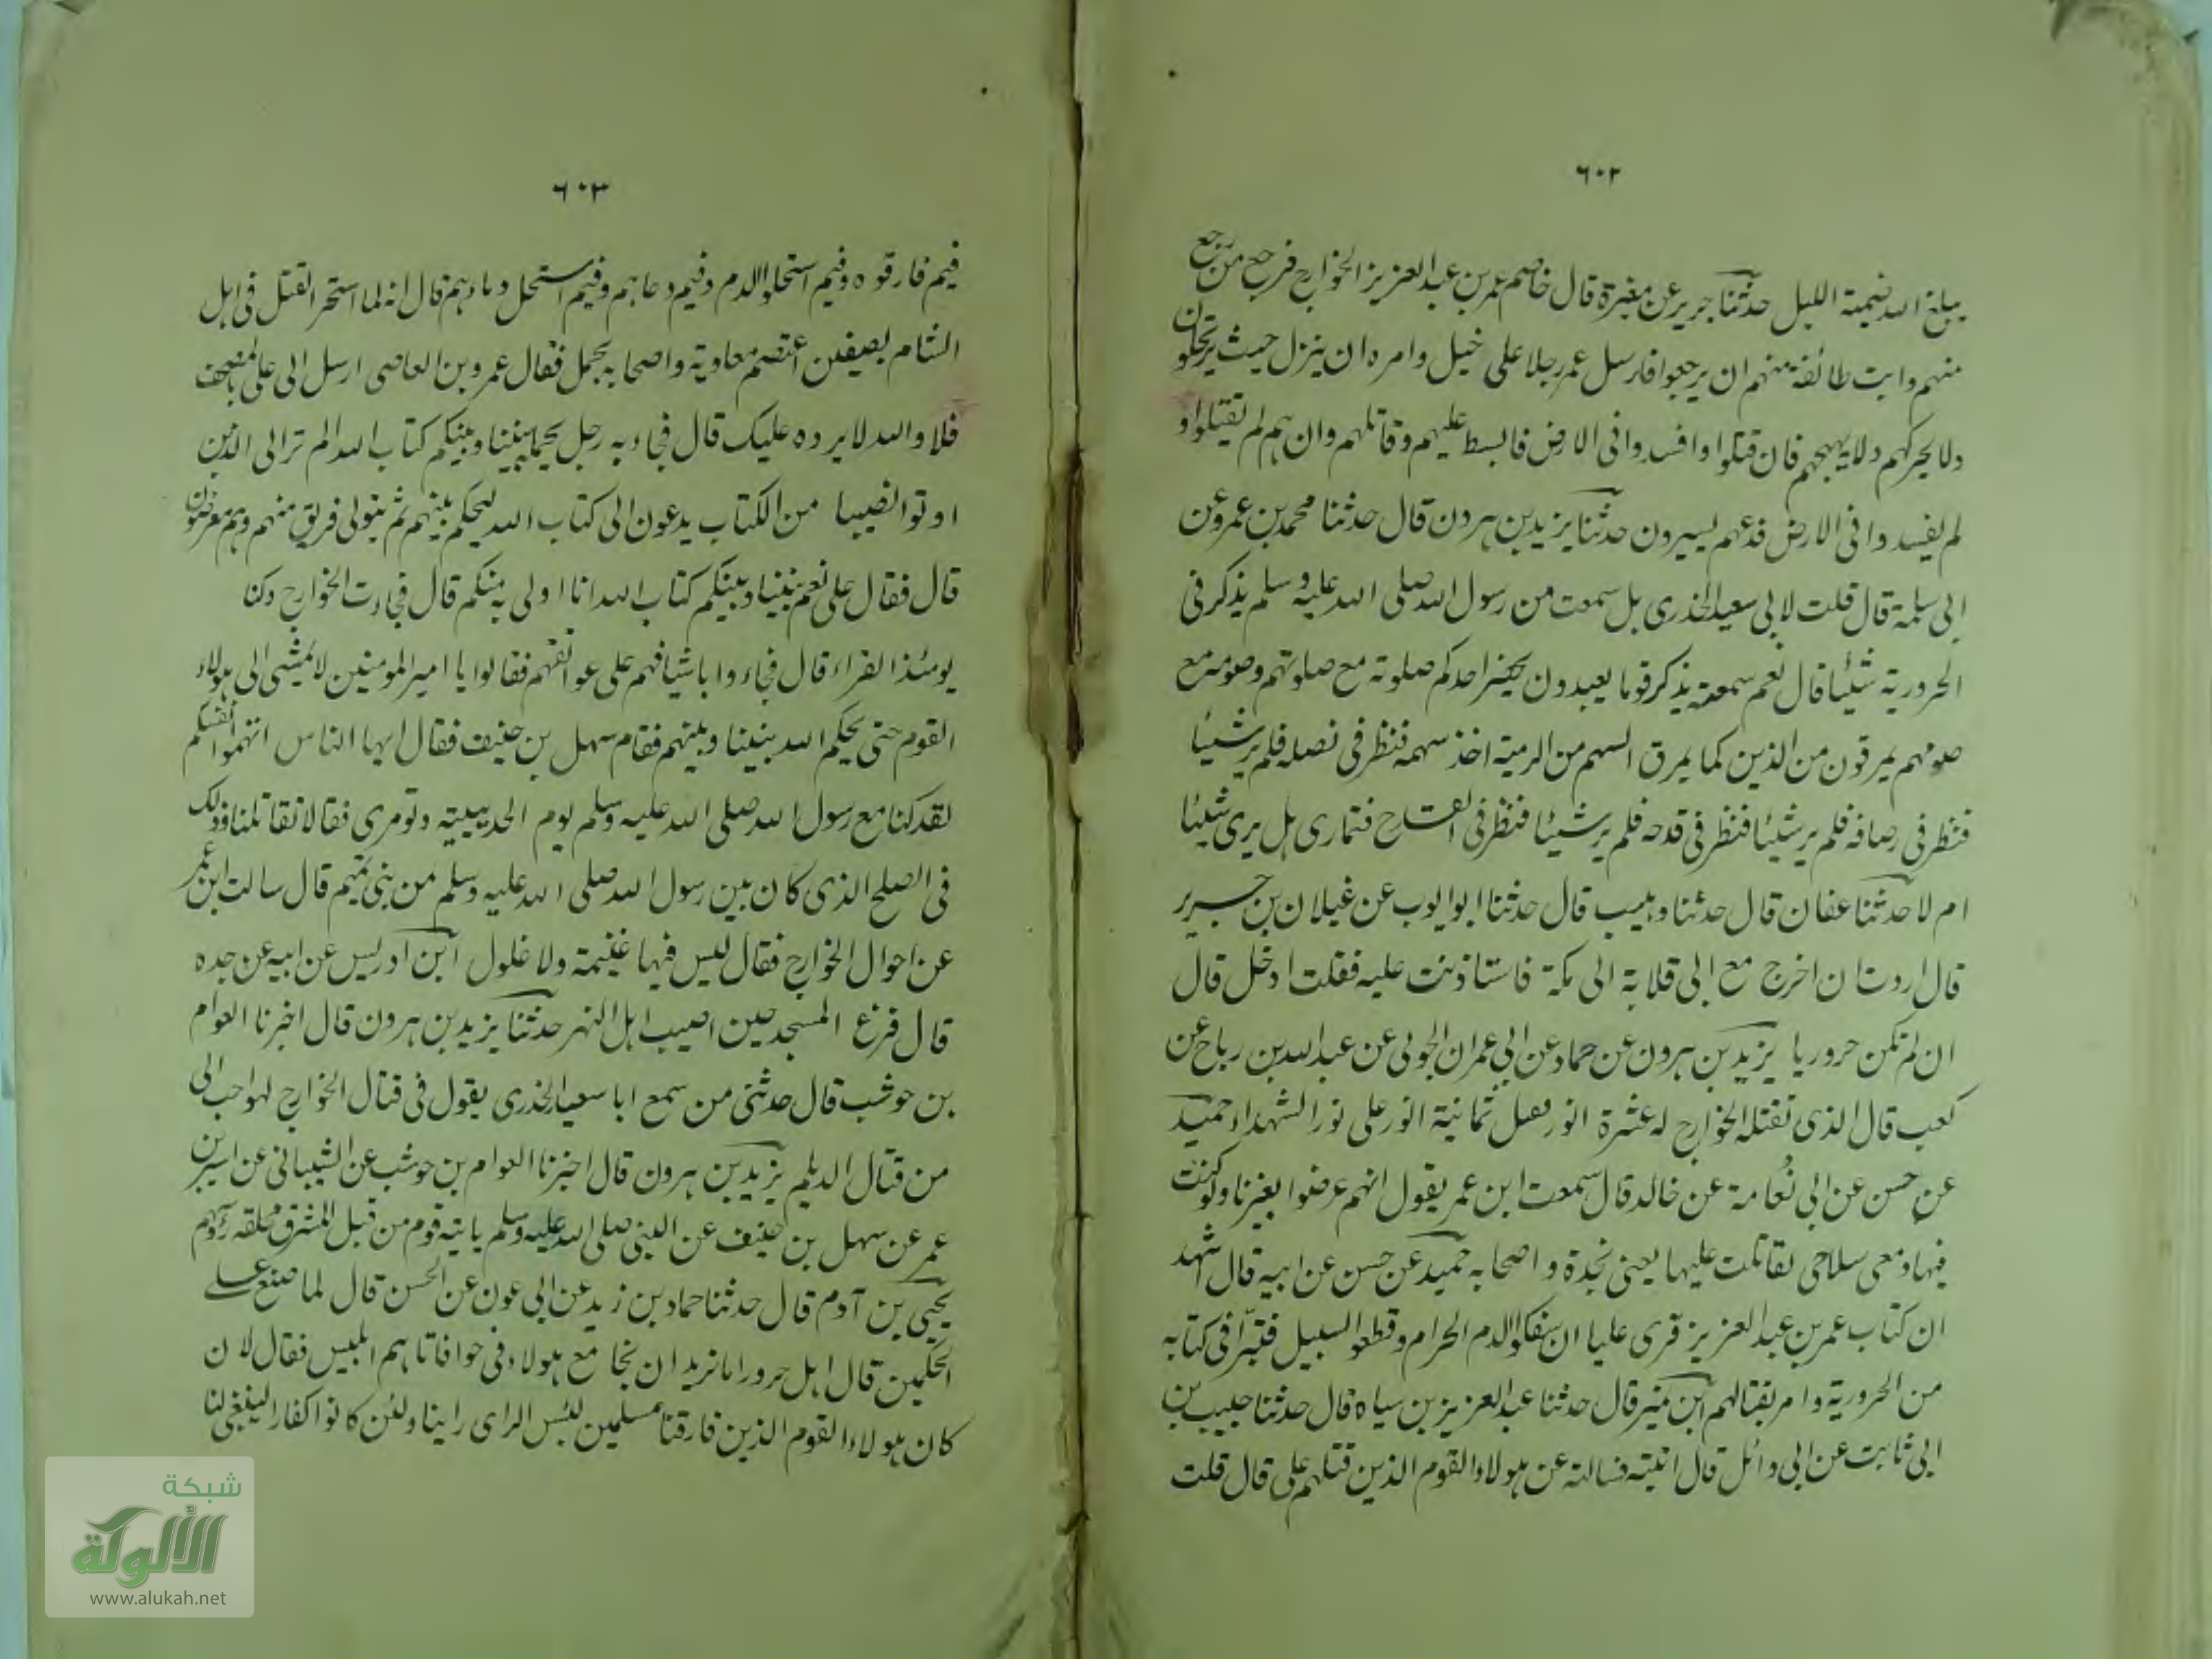 ٦٠٢
يبلغ الله ضيمة الليل حدثنا جرير عن مغيرة قال خاصم عمر بن عبد العزيز الخوارج فرجع من رجع
منهم وابت طائفة منهم ان يرجعوا فارسل عمر رجلا على خيل وامره ان ينزل حيث يرتحلون
ولا يحركهم ولا يهيجهم فان قتلوا وافسدوا فى الارض فابسط عليهم وقاتلهم وان هم لم يقتلوا و
لم يفسدوا فى الارض فدعهم يسيرون حدثنا يزيد بن هرون قال حدثنا محمد بن عمرو عن
ابى سلمة قال قلت لابى سعيد الخذرى هل سمعت من رسول الله صلى الله عليه وسلم يذكر فى
الحرورية شيئا قال نعم سمعته يذكر قوما يعبدون يحقر احدكم صلوته مع صلوتهم وصومه مع
صومهم يمرقون من الدين كما يمرق السهم من الرمية اخذ سهمه فنظر فى نصله فلم ير شيئا
فنظر فى رصافه فلم ير شيئا فنظر فى قدحه فلم ير شيئا فنظر فى القداح فتمارى هل يرى شيئا
ام لا حدثنا عفان قال حدثنا وهيب قال حدثنا ابو ايوب عن غيلان بن جرير
قال اردت ان اخرج مع ابى قلابة الى مكة فاستاذنت عليه فقلت ادخل قال
ان لم تكن حروريا يزيد بن هرون عن حماد عن ابى عمران الجونى عن عبد الله بن رباح عن
كعب قال الذى تقتله الخوارج له عشرة انور فضل ثمانية انور على نور الشهداء حميد
عن حسن عن ابى نعامة عن خالد قال سمعت ابن عمر يقول انهم عرضوا بغيرنا ولو كنت
فيها ومعى سلاحى لقاتلت عليها يعنى نجدة واصحابه حميد عن حسن عن ابيه قال اشهد
ان كتاب عمر بن عبد العزيز قرى علينا ان سفكوا الدم الحرام وقطعوا السبيل فتبرأ فى كتابه
من الحرورية وامر بقتالهم ابن نمير قال حدثنا عبد العزيز بن سياه قال حدثنا حبيب بن
ابى ثابت عن ابى وائل قال اتيته فسالته عن هولاء القوم الذين قتلهم على قال قلت
٦٠٣
فيم فارقوه وفيم استحلوا الدم وفيم دعاهم وفيم استحل دماءهم قال انه لما استحر القتل فى اهل
الشام بصفين اعتصم معاوية واصحابه بجبل فقال عمرو بن العاصى ارسل الى على بالمصحف
فلا والله لا يرده عليك قال فجاء به رجل يحمله بيننا وبينكم كتاب الله الم تر الى الذين
اوتوا نصيبا من الكتاب يدعون الى كتاب الله ليحكم بينهم ثم يتولى فريق منهم وهم معرضون
قال فقال على نعم بيننا وبينكم كتاب الله انا اولى به منكم قال فجاءت الخوارج وكنا
يومئذ القراء قال فجاءوا باسيافهم على عواتقهم فقالوا يا امير المومنين لا نمشى الى هولاء
القوم حتى يحكم الله بيننا وبينهم فقام سهل بن حنيف فقال ايها الناس اتهموا انفسكم
لقد كنا مع رسول الله صلى الله عليه وسلم يوم الحديبية ولو نرى قتالا لقاتلنا وذلك
فى الصلح الذى كان بين رسول الله صلى الله عليه وسلم من بنى تميم قال سالت ابن عمر
عن احوال الخوارج فقال ليس فيها غنيمة ولا غلول ابن ادريس عن ابيه عن جده
قال فزع المسجد حين اصيب اهل النهر حدثنا يزيد بن هرون قال اخبرنا العوام
بن حوشب قال حدثنى من سمع ابا سعيد الخذرى يقول فى قتال الخوارج لهو احب الى
من قتال الديلم يزيد بن هرون قال اخبرنا العوام بن حوشب عن الشيبانى عن اسير بن
عمر عن سهل بن حنيف عن النبى صلى الله عليه وسلم ياتيه قوم من قبل المشرق محلقه رؤسهم
يحيى بن آدم قال حدثنا حماد بن زيد عن ابى عون عن الحسن قال لما صنع على
الحكمين قال اهل حرورا ما نريد ان نجامع هولاء فى فاتاهم ابليس فقال لان
كان هولاء القوم الذين فارقنا مسلمين لبئس الراى راينا ولئن كانوا كفارا لينبغى لنا
شبكة
الألوكة
www.alukah.net